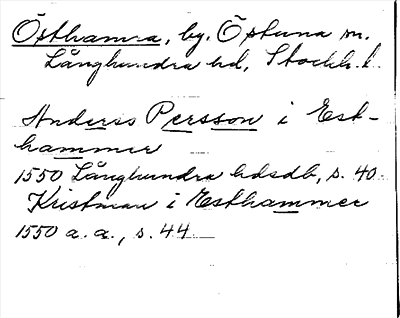 Östhamra, by. Östuna sn.
Långhundra hd, Stockh. l.
Anders Persson i Est-
hammer
1550 Långhundra hdsdb, s. 40
Kristman i Esthammer
1550 a. a., s. 44